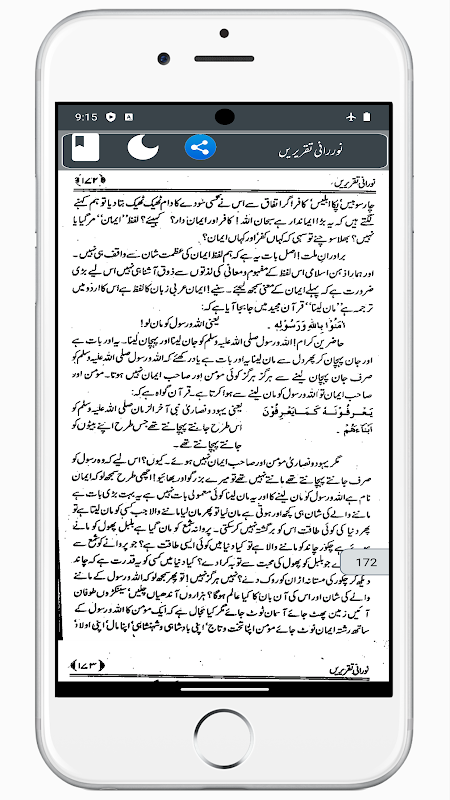 9:15
نورانی تقریریں
نورانی تقریریں
﴿۱۷۲﴾
چار سو بیس، پکا ابلیس، کافر اگر اتفاق سے اس نے کسی سودے کا دام ٹھیک ٹھیک بتا دیا تو ہم کہنے
لگتے ہیں کہ یہ بڑا ایماندار ہے سبحان اللہ! کافر اور ایمان دار؟ کہیئے؟ لفظ "ایمان" مر گیا یا
نہیں؟ بھلا سوچئے تو سہی کہ کہاں کفر اور کہاں ایمان؟
برادران ملت! اصل بات یہ ہے کہ ہم لفظ ایمان کی عظمت شان سے واقف ہی نہیں۔
اور ہمارا ذہن اسلامی اس لفظ کے مفہوم و معانی کی لذتوں سے ذوق آشنا ہی نہیں اس لیے بڑی
ضرورت ہے کہ پہلے ایمان کے معنی سمجھ لیجئے۔ سنیے! ایمان عربی زبان کا لفظ ہے اس کا اردو میں
ترجمہ ہے "مان لینا" قرآن مجید میں جا بجا آیا ہے کہ:
اٰمَنُوْا بِاللّٰهِ وَرَسُوْلِهٖ ۔ یعنی اللہ و رسول کو مان لو!
حاضرین کرام! اللہ و رسول صلی اللہ علیہ وسلم کو جان لینا اور پہچان لینا۔ یہ اور بات ہے
اور جان پہچان کر پھر دل سے مان لینا یہ اور بات ہے یاد رکھئے کہ اللہ و رسول صلی اللہ علیہ وسلم کو
صرف جان پہچان لینے سے ہرگز ہرگز کوئی مومن اور صاحب ایمان نہیں ہوتا۔ مومن اور
صاحب ایمان تو اللہ و رسول کو مان لینے سے ہوا کرتا ہے۔ قرآن گواہ ہے کہ:
یَعْرِفُوْنَهٗ كَمَا یَعْرِفُوْنَ یعنی یہود و نصاریٰ نبی آخر الزمان صلی اللہ علیہ وسلم کو
اَبْنَآءَهُمْ ۔ اس طرح جانتے پہچانتے تھے جس طرح اپنے بیٹوں کو
جانتے پہچانتے تھے۔
مگر یہود و نصاریٰ مومن اور صاحب ایمان نہیں ہوئے۔ کیوں؟ اس لیے کہ وہ رسول کو
صرف جانتے پہچانتے تھے مانتے نہیں تھے تو میرے بزرگو اور بھائیو! اچھی طرح سمجھ لو کہ ایمان
نام ہے اللہ و رسول کو مان لینے کا اور یہ مان لینا کوئی معمولی بات نہیں ہے یہ بہت بڑی بات ہے
ماننے والے کی شان ہی کچھ اور ہوتی ہے مان لیا تو پھر مان لیا ماننے والا جب کسی کو مان لیتا ہے تو
پھر دنیا کی کوئی طاقت اس کو برگشتہ نہیں کر سکتی۔ پروانہ شمع کو مان گیا ہے بلبل پھول کو مانے
ہے چکور چاند کو ماننے والا ہے تو کیا دنیا میں کوئی ایسی طاقت ہے؟ جو پروانے کو شمع سے
جو بلبل کو پھول کی محبت سے توبہ کرا دے؟ کیا دنیا میں کسی کو یہ قدرت ہے کہ چاند
دیکھ کر چکور کی مستانہ اڑان کو روک دے؟ نہیں ہرگز نہیں! تو پھر سمجھ لو کہ اللہ و رسول کے ماننے
والے کی شان اور اس کی آن بان کا کیا عالم ہوگا؟ ہزاروں آندھیاں چلیں، سینکڑوں طوفان
آئیں زمین پھٹ جائے آسمان ٹوٹ جائے مگر کیا مجال ہے کہ ایک مومن کا اللہ و رسول کے
ساتھ رشتہ ایمان ٹوٹ جائے مومن اپنا تخت و تاج، اپنی بادشاہی و شہنشاہی، اپنا مال، اپنی اولاد
172
نورانی تقریریں
﴿۱۷۳﴾